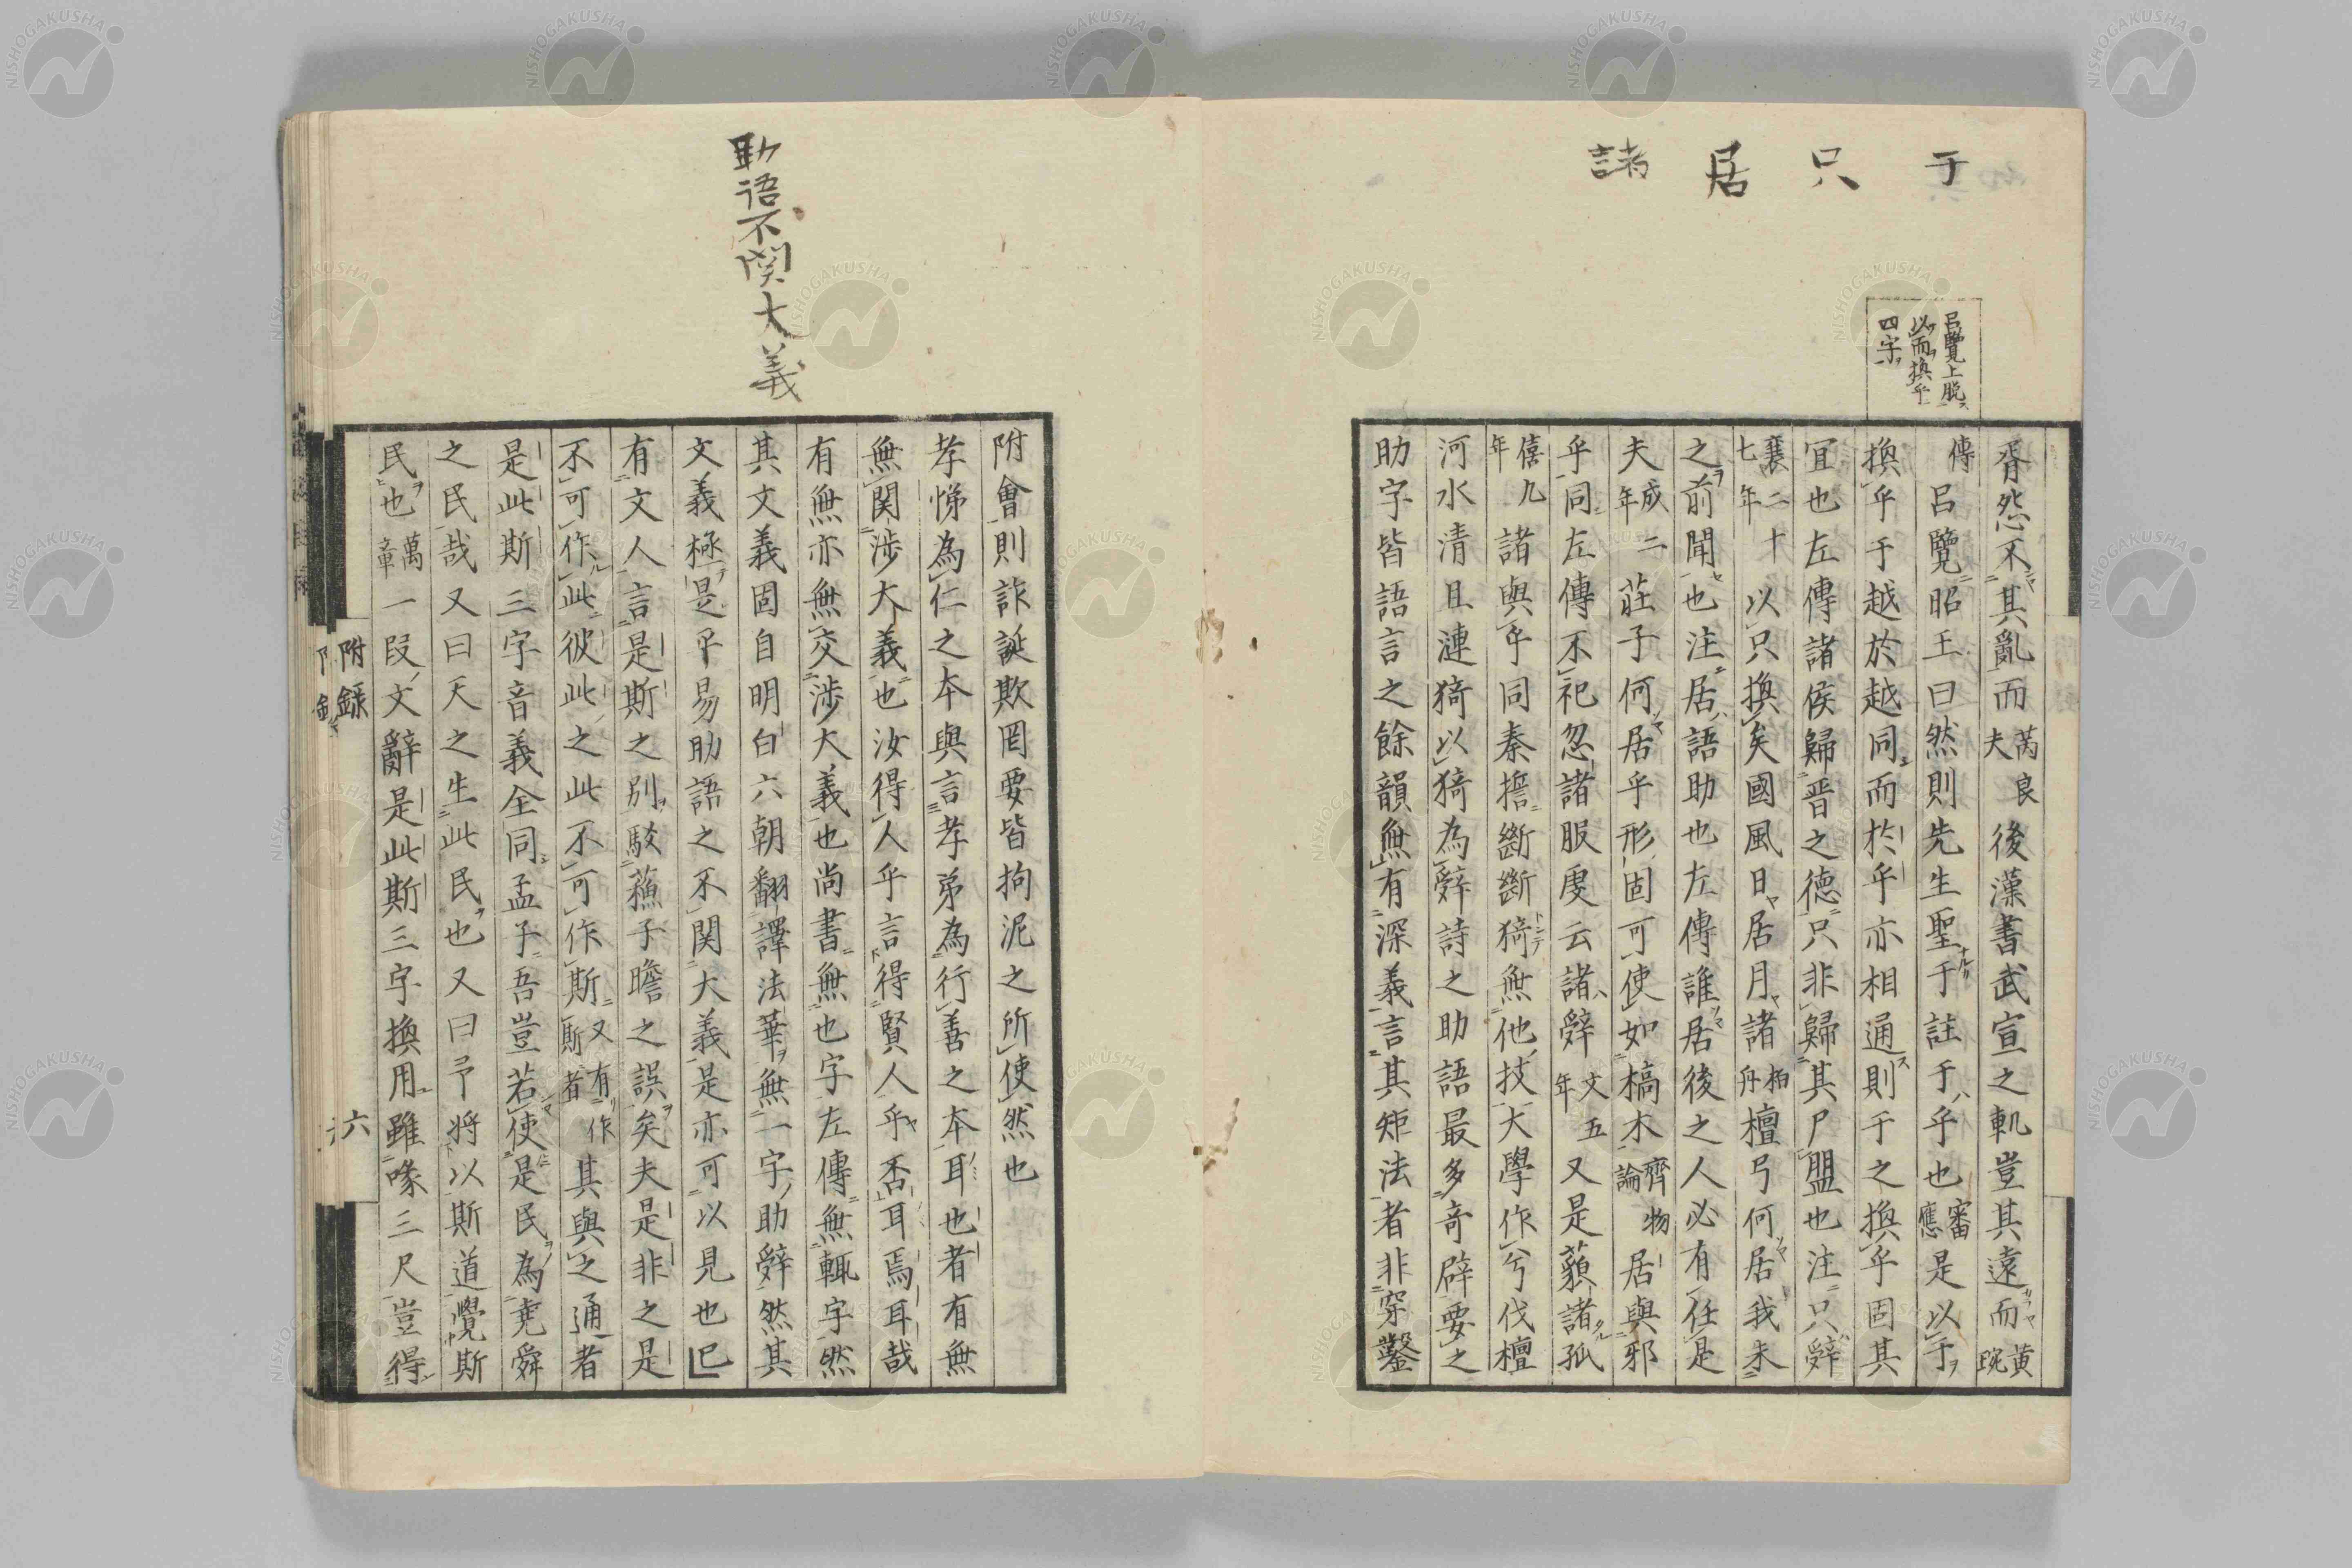 于 只 居 諸
呂覽上脱
以而換乎
四字
胥怨不其亂而萬良夫後漢書武宣之軌豈其遠而黄琬
傳呂覽昭王曰然則先生聖于註于乎也審應是以于
換乎于越於越同而於乎亦相通則于之換乎固其
宜也左傳諸侯歸晋之德只非歸其尸盟也注只辤
襄二十七年以只換矣國風日居月諸柏舟檀弓何居我未
之前聞也注居語助也左傳誰居後之人必有任是
夫成二年莊子何居乎形固可使如槁木齊物論居與邪
乎同左傳不祀忽諸服虔云諸辤文五年又是藐諸孤
僖九年諸與乎同秦誓斷斷猗無他技大學作兮伐檀
河水清且漣猗以猗為辤詩之助語最多奇辟要之
助字皆語言之餘韻無有深義言其矩法者非穿鑿
助語不関大義
附會則詐誕欺罔要皆拘泥之所使然也
孝悌為仁之本與言孝弟為行善之本耳也者有無
無関渉大義也汝得人乎言得賢人乎否耳焉耳哉
有無亦無交渉大義也尚書無也字左傳無輒字然
其文義固自明白六朝翻譯法華無一字助辤然其
文義極是平易助語之不関大義是亦可以見也已
有文人言是斯之別駁蘓子瞻之誤矣夫是非之是
不可作此彼此之此不可作斯又有作斯者其與之通者
是此斯三字音義全同孟子吾豈若使是民為堯舜
之民哉又曰天之生此民也又曰予將以斯道覺斯
民也萬章一段文辭是此斯三字換用雖喙三尺豈得
附録
六